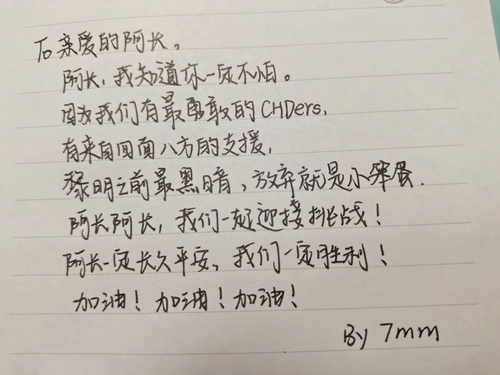 亲爱的阿长,
阿长,我知道你一定不怕。
因为我们有最勇敢的CHDers,
有来自四面八方的支援,
黎明之前最黑暗,放弃就是小笨蛋.
阿长阿长,我们一起迎接挑战!
阿长一定长久平安,我们一定胜利!
加油!加油!加油!
By 7mm